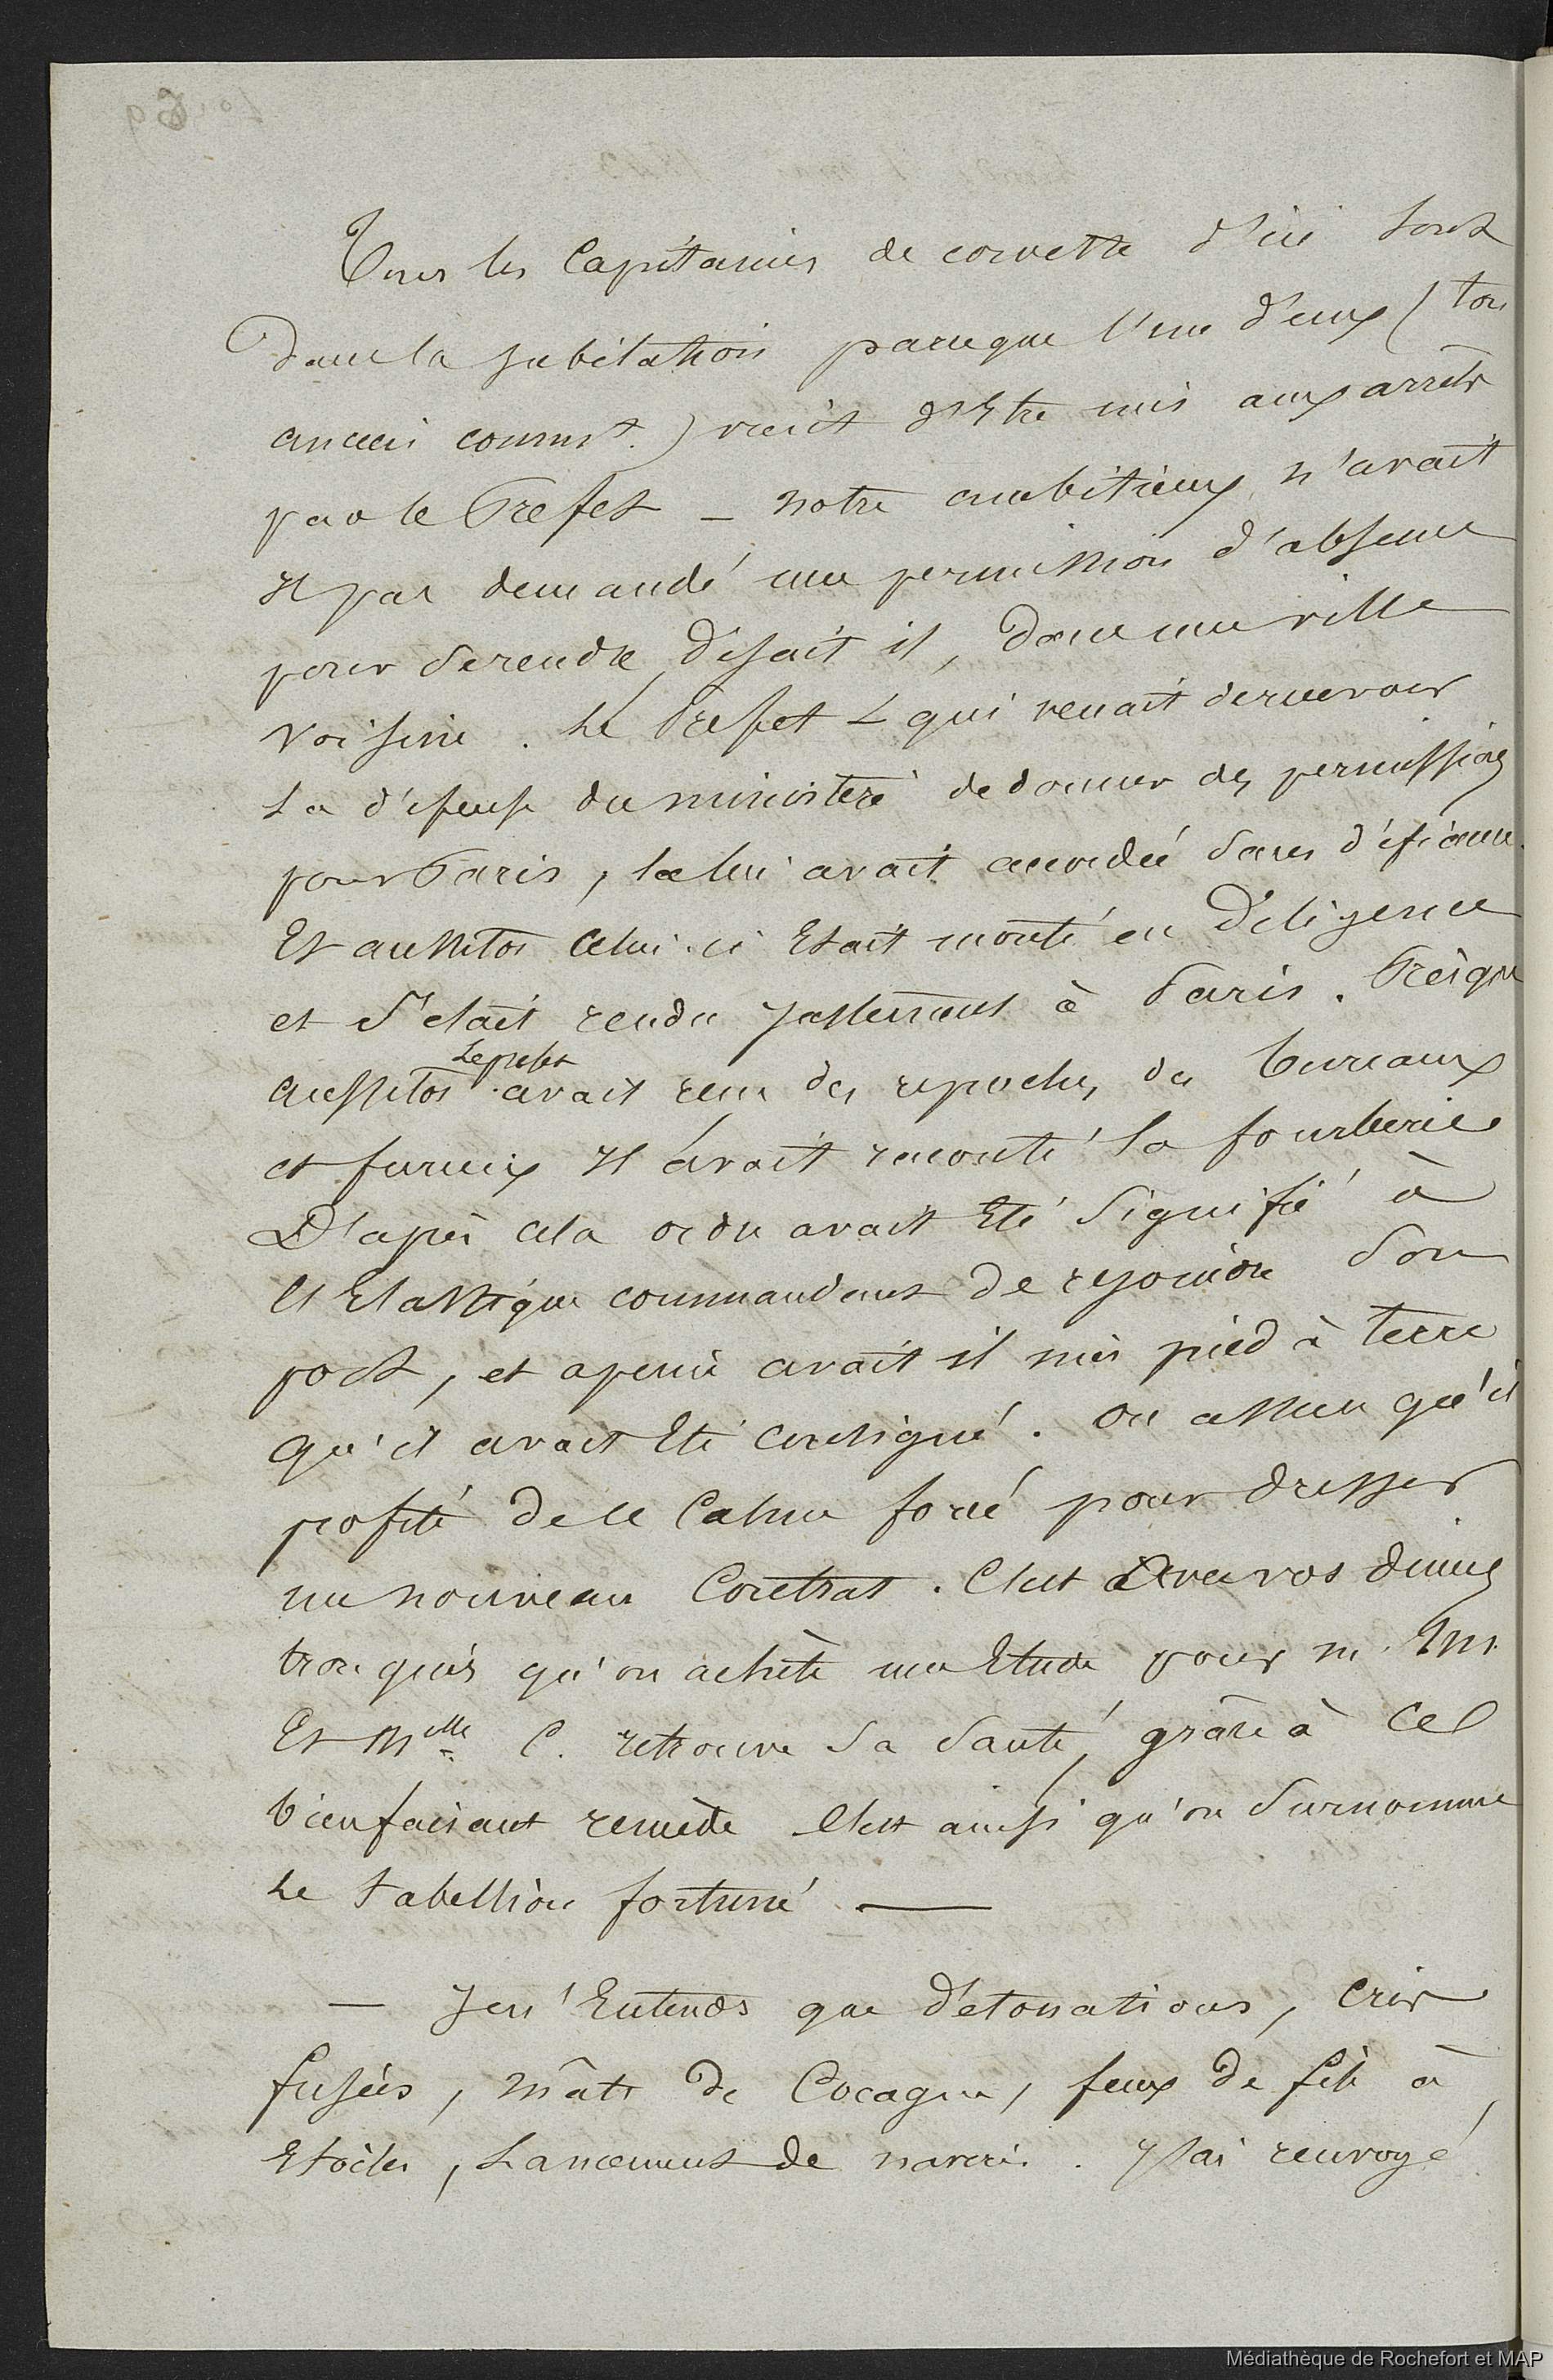 Tous les Capitaines de corvette d'ici sont
dans la jubilation parceque l'un d'eux (ton
ancien comm.t) vient d'Etre mis aux arrêts
par le Prefet _ notre ambitieux n'avait
il pas demandé une permission d'absence
pour se rendre, disait il, dans une ville
voisine. Le Prefet qui venait de recevoir
la défense du ministère de donner des permissions
pour Paris, la lui avait accordée sans défiance.
Et aussitot celui-ci Etait monté en Diligence
et s'etait rendu justement à Paris. Presque
aussitot Le prefet avait reçu des reproches des bureaux
et furieux Il avait raconté la fourberie
D'après cela ordre avait Eté signifié à
l'Elastique commandant de rejoindre son
port, et a peine avait il mis pied à terre
qu'il avait Eté consigné. on assure qu'il
profite de ce Calme forcé pour dresser
un nouveau Contrat. C'est avec vos dimes
tronquées qu'on achète une Etude pour m. Em.
Et Mlle C. retrouve sa santé, grâce à cel
bienfaisant remède C'est ainsi qu'on surnomme
Le tabellion fortuné —
— Je n'Entends que détonations, cris
fusées, mâts de Cocagne, feux de file à
Etoiles, Lancement de navire. J'ai renvoyé
Médiathèque de Rochefort et MAP